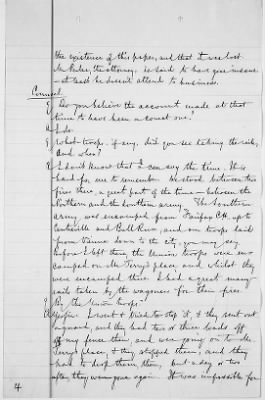 the existence of this paper, and that I was lost.
Mr. the attorney, is said to have gone insane
- at least he doesn't attend to business.
Counsel.
Q Do you believe the account made at that
time to have been a correct one?
A I do.
Q What troops, if any, did you see taking the rails,
and when?
A I don't know that I can say the time. It is
hard for me to remember. We stood between two
fires there, a great part of the time - between the
Northern and the Southern army. The Southern
army was encamped from Fairfax C.H. up to
Centreville and Bull Run, and our troops laid
from Vienna down to the city, you may say.
Before I left there the Union troops were en-
camped on Mr. Terry's place, and whilst they
were encamped there I had a great many
rails taken by the wagoners for their fires.
Q By the Union troops?
A Yes sir. I went & tried to stop it, & they sent out
a guard, and they had two or three loads off
of my fence then, and were going on to Mr.
Terry's place, & they stopped them, and they
had to drop them there, but a day or two
after they were gone again. It was impossible for
4